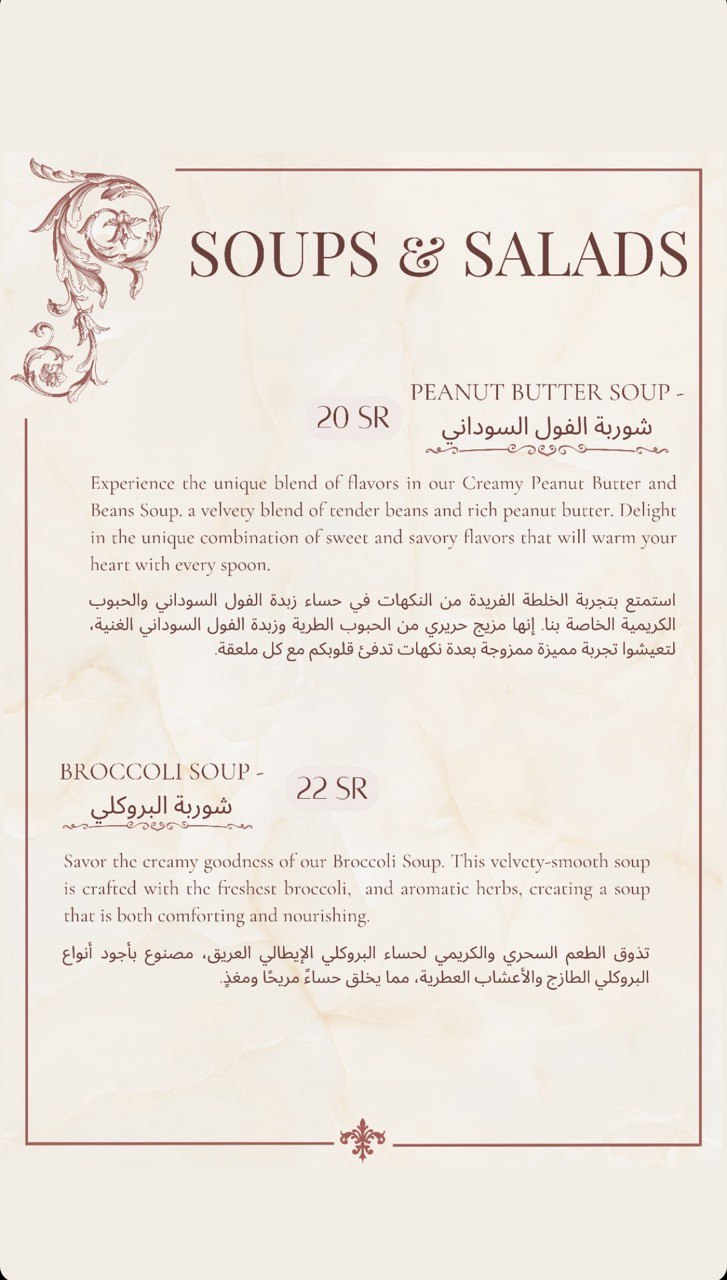 SOUPS & SALADS
PEANUT BUTTER SOUP -
20 SR
شوربة الفول السوداني
Experience the unique blend of flavors in our Creamy Peanut Butter and
Beans Soup. a velvety blend of tender beans and rich peanut butter. Delight
in the unique combination of sweet and savory flavors that will warm your
heart with every spoon.
استمتع بتجربة الخلطة الفريدة من النكهات في حساء زبدة الفول السوداني والحبوب
الكريمية الخاصة بنا. إنها مزيج حريري من الحبوب الطرية وزبدة الفول السوداني الغنية،
لتعيشوا تجربة مميزة ممزوجة بعدة نكهات تدفئ قلوبكم مع كل ملعقة.
BROCCOLI SOUP -
22 SR
شوربة البروكلي
Savor the creamy goodness of our Broccoli Soup. This velvety-smooth soup
is crafted with the freshest broccoli,  and aromatic herbs, creating a soup
that is both comforting and nourishing.
تذوق الطعم السحري والكريمي لحساء البروكلي الإيطالي العريق، مصنوع بأجود أنواع
البروكلي الطازج والأعشاب العطرية، مما يخلق حساءً مريحًا ومغذٍ.